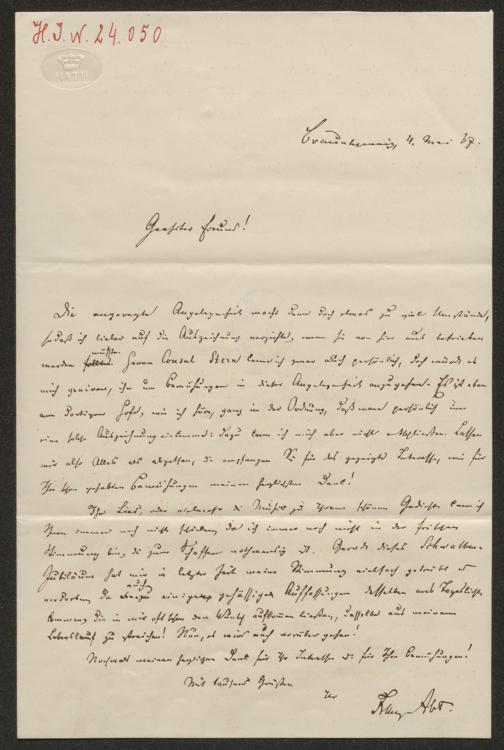 H.I.N. 24.050
BATH
Braunschweig, 4. Mai 67.
Geehrter Freund!
Die angeregte Angelegenheit macht denn doch etwas zu viel Umstände,
sodaß ich lieber auf die Auszeichnung verzichte, wenn sie von hier aus betrieben
müßte
werden sollte. Herrn Consul Stern kenne ich zwar auch persönlich, doch würde es
mich geniren, ihn um Bemühungen in dieser Angelegenheit anzugehen. Es ist eben
am dortigen Hofe, wie ich höre, ganz in der Ordnung, daß man persönlich um
eine solche Auszeichnung einkommt: dazu kann ich mich aber nicht entschließen. Lassen
wir also Alles als abgethan, u. empfangen Sie für das gezeigte Interesse, wie für
Ihre schon gehabten Bemühungen meinen herzlichsten Dank!
Ihr Lied, oder vielmehr die Musik zu Ihrem schönen Gedichte kann ich
Ihnen immer noch nicht schicken, da ich immer noch nicht in der frischen
Stimmung bin, die zum Schaffen nothwendig ist. Gerade dieses Schwalben-
Jubiläum hat mir in letzter Zeit meine Stimmung vielfach getrübt u.
verdorben, da auch einige gehässige Auffassungen desselben ans Tageslicht
kommen, die in mir oft schon den Wunsch aufkommen ließen, dasselbe aus meinem
Lebenslauf zu streichen! Nun, es wird auch vorüber gehen!
Nochmals meinen herzlichen Dank für Ihr Interesse u. für Ihre Bemühungen!
Mit tausend Grüßen
Ihr
Franz Abt.